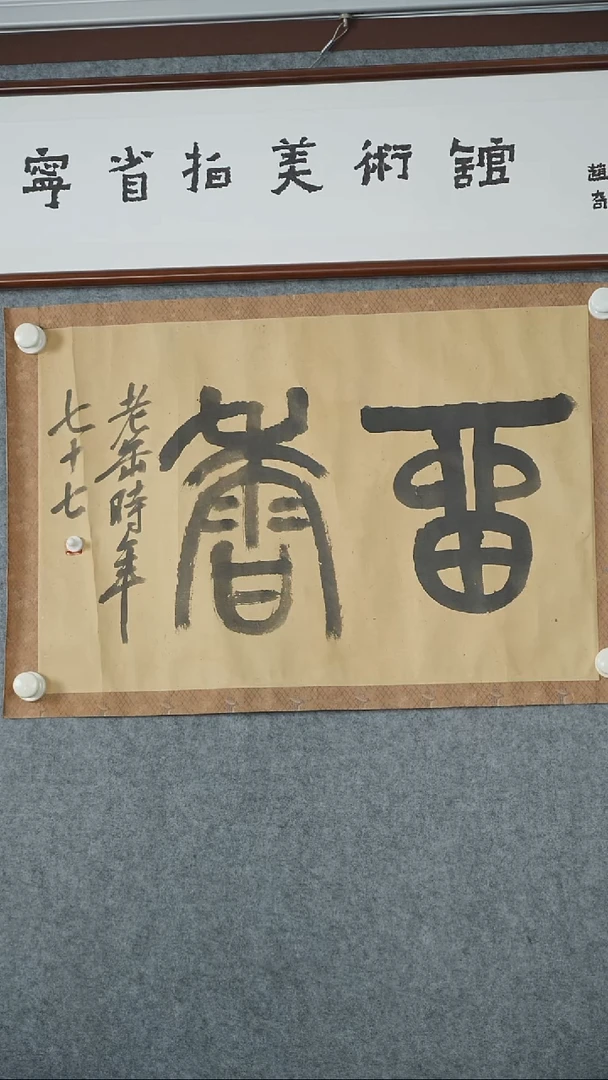 寧省拍美術館
趙奇
老缶時年
七十七